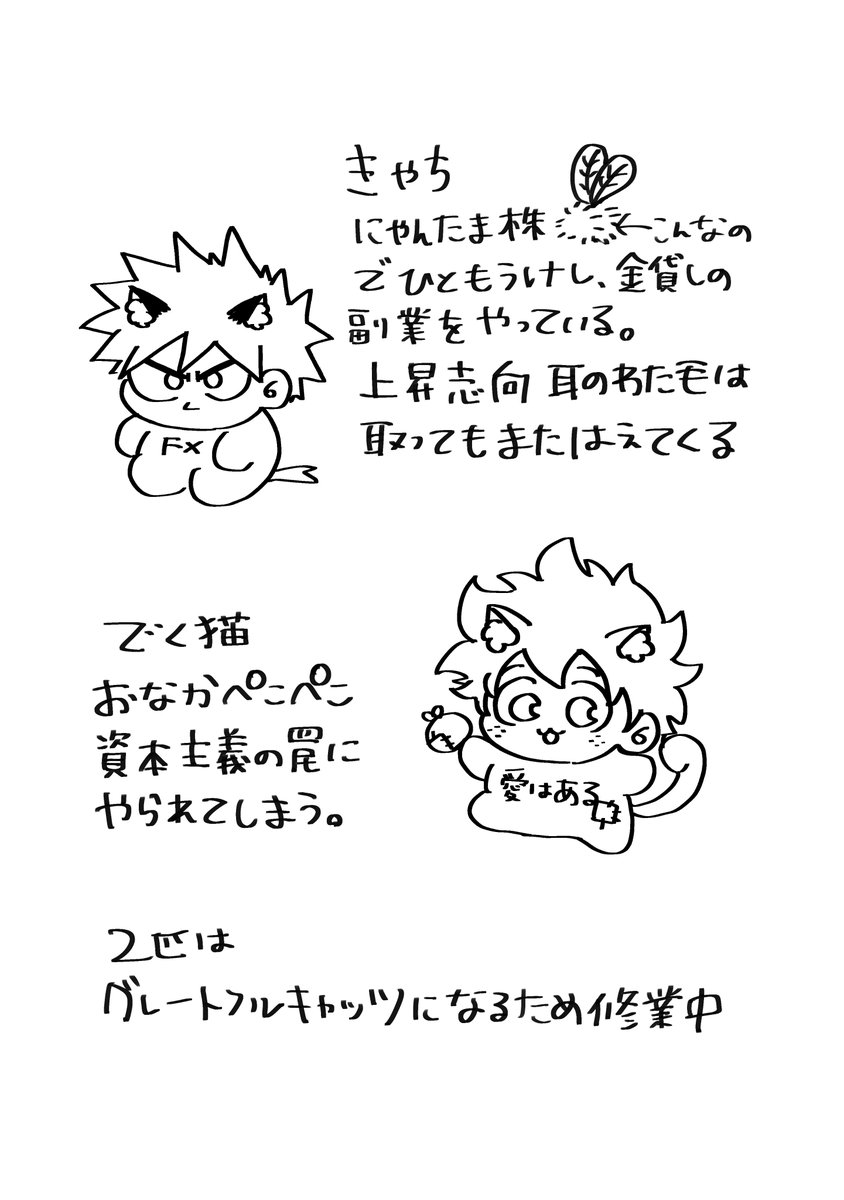 きゃち
にゃんたま株 ←こんなの
でひともうけし、金貸しの
副業をやっている。
上昇志向 耳のわた毛は
取ってもまたはえてくる
FX
でく猫
おなかペこペこ
資本主義の罠に
やられてしまう。
愛はある
2匹は
グレートフルキャッツになるため修業中